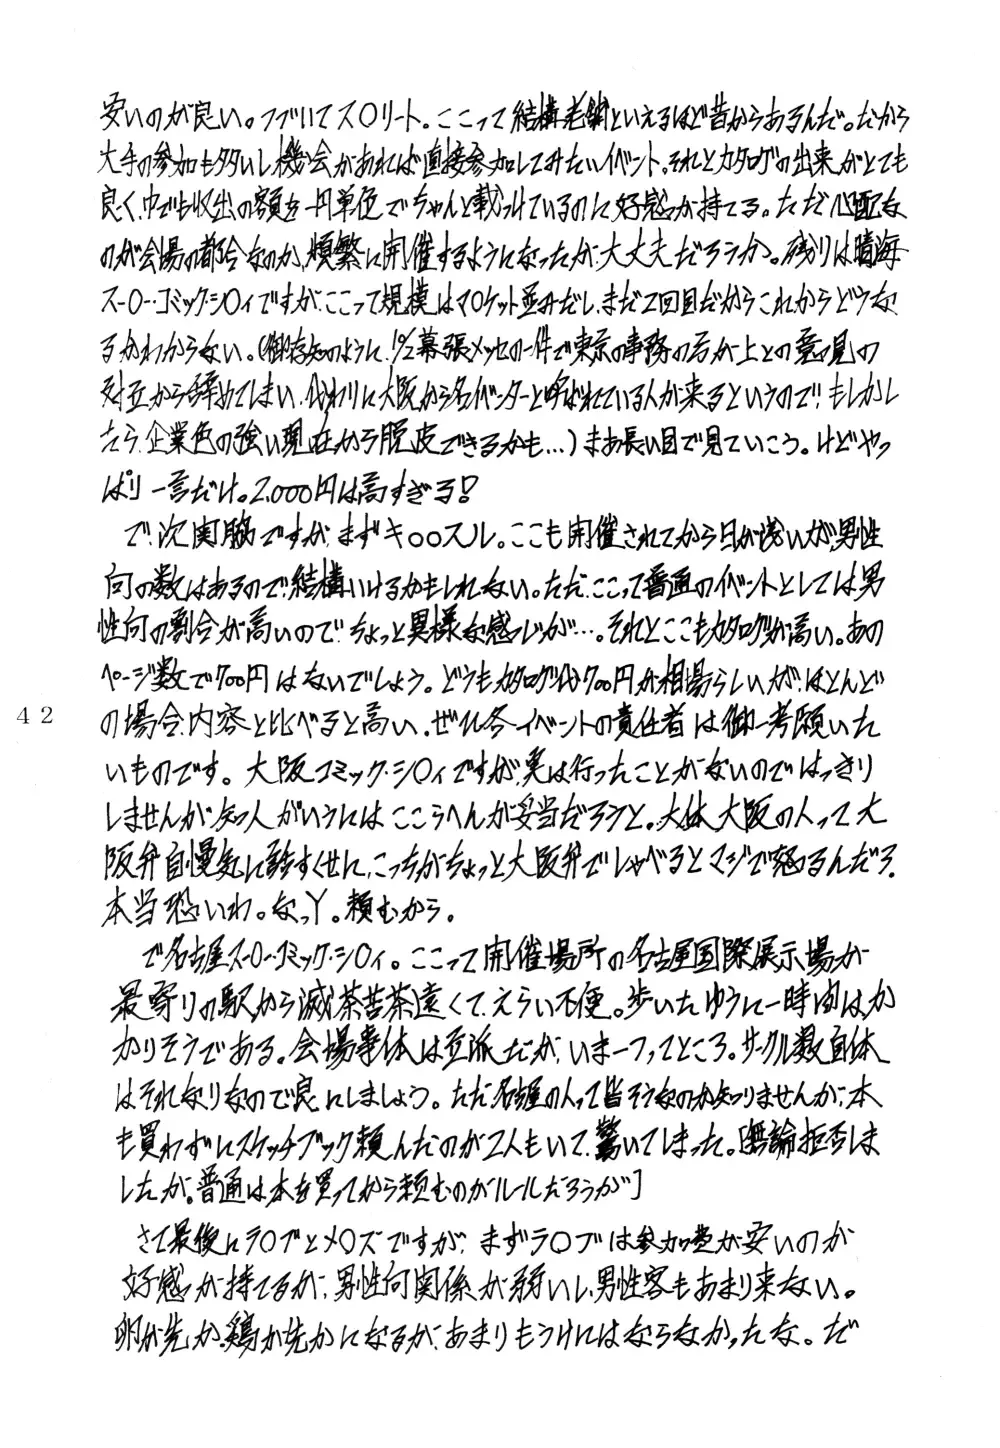 安いのが良い。つづいてス〇リート。ここって結構老舗といえるほど昔からあるんだ。だから
大手の参加も多いし機会があれば直接参加してみたいイベント。それとカタログの出来がとても
良く、中でも収出の額を一円単色でちゃんと載っけているのに好感が持てる。ただ心配な
のが会場の都合なのか、頻繁に開催するようになったが、大丈夫だろうか。残りは晴海
ス-〇-・コミック・シ〇ィですが、ここって規模はマ〇ケット並みだし、まだ2回目だからこれからどうな
るかわからない。(御存知のように、幕張メッセの一件で東京の事務の方が上との意見の
対立から辞めてしまい、代わりに大阪から名イベンターと呼ばれている人が来るというので!もしかし
たら、企業色の強い現在から脱皮できるかも…)まあ長い目で見ていこう。けどやっ
ぱり一言だけ。2,000円は高すぎる!
で、次関脇ですが、まずキ〇〇スル。ここも開催されてから日が浅いが、男性
向の数はあるので、結構いけるかもしれない。ただ、ここって普通のイベントとしては男
性向の割合が高いので、ちょっと異様な感じが…。それとここもカタログが高い。あの
ページ数で700円はないでしょう。どうもカタログ代700円が相場らしいが、ほとんど
の場合、内容と比べると高い。ぜひ各イベントの責任者は御一考願いた
いものです。大阪コミック・シ〇ィですが、実は行ったことがないのではっきり
しませんが、知人がいうにはここらへんが妥当だろうと。大体大阪の人って大
阪弁自慢気に話すくせに、こっちがちょっと大阪弁でしゃべるとマジで怒るんだろ?
本当恐いわ。なっY。頼むから。
で名古屋ス-〇-・コミック・シ〇ィ。ここって開催場所の名古屋国際展示場が
最寄りの駅から滅茶苦茶遠くて、えらい不便。歩いたゆうに一時間はか
かりそうである。会場事体は立派だが、いま一つってところ。サークル数自体
はそれなりなので良しにしましょう。ただ名古屋の人って皆そうなのか知りませんが、本
も買わずにスケッチブック頼んだのが2人もいて、驚いてしまった。[無論拒否しま
したが。普通は本を買ってから頼むのがルールだろうが]
さて最後にラ〇ブとメ〇ズですが、まずラ〇ブは参加費が安いのが
好感が持てるが、男性向関係が弱いし、男性客もあまり来ない。
卵が先か、鶏が先かになるが、あまりもうけにはならなかったな。だ
42